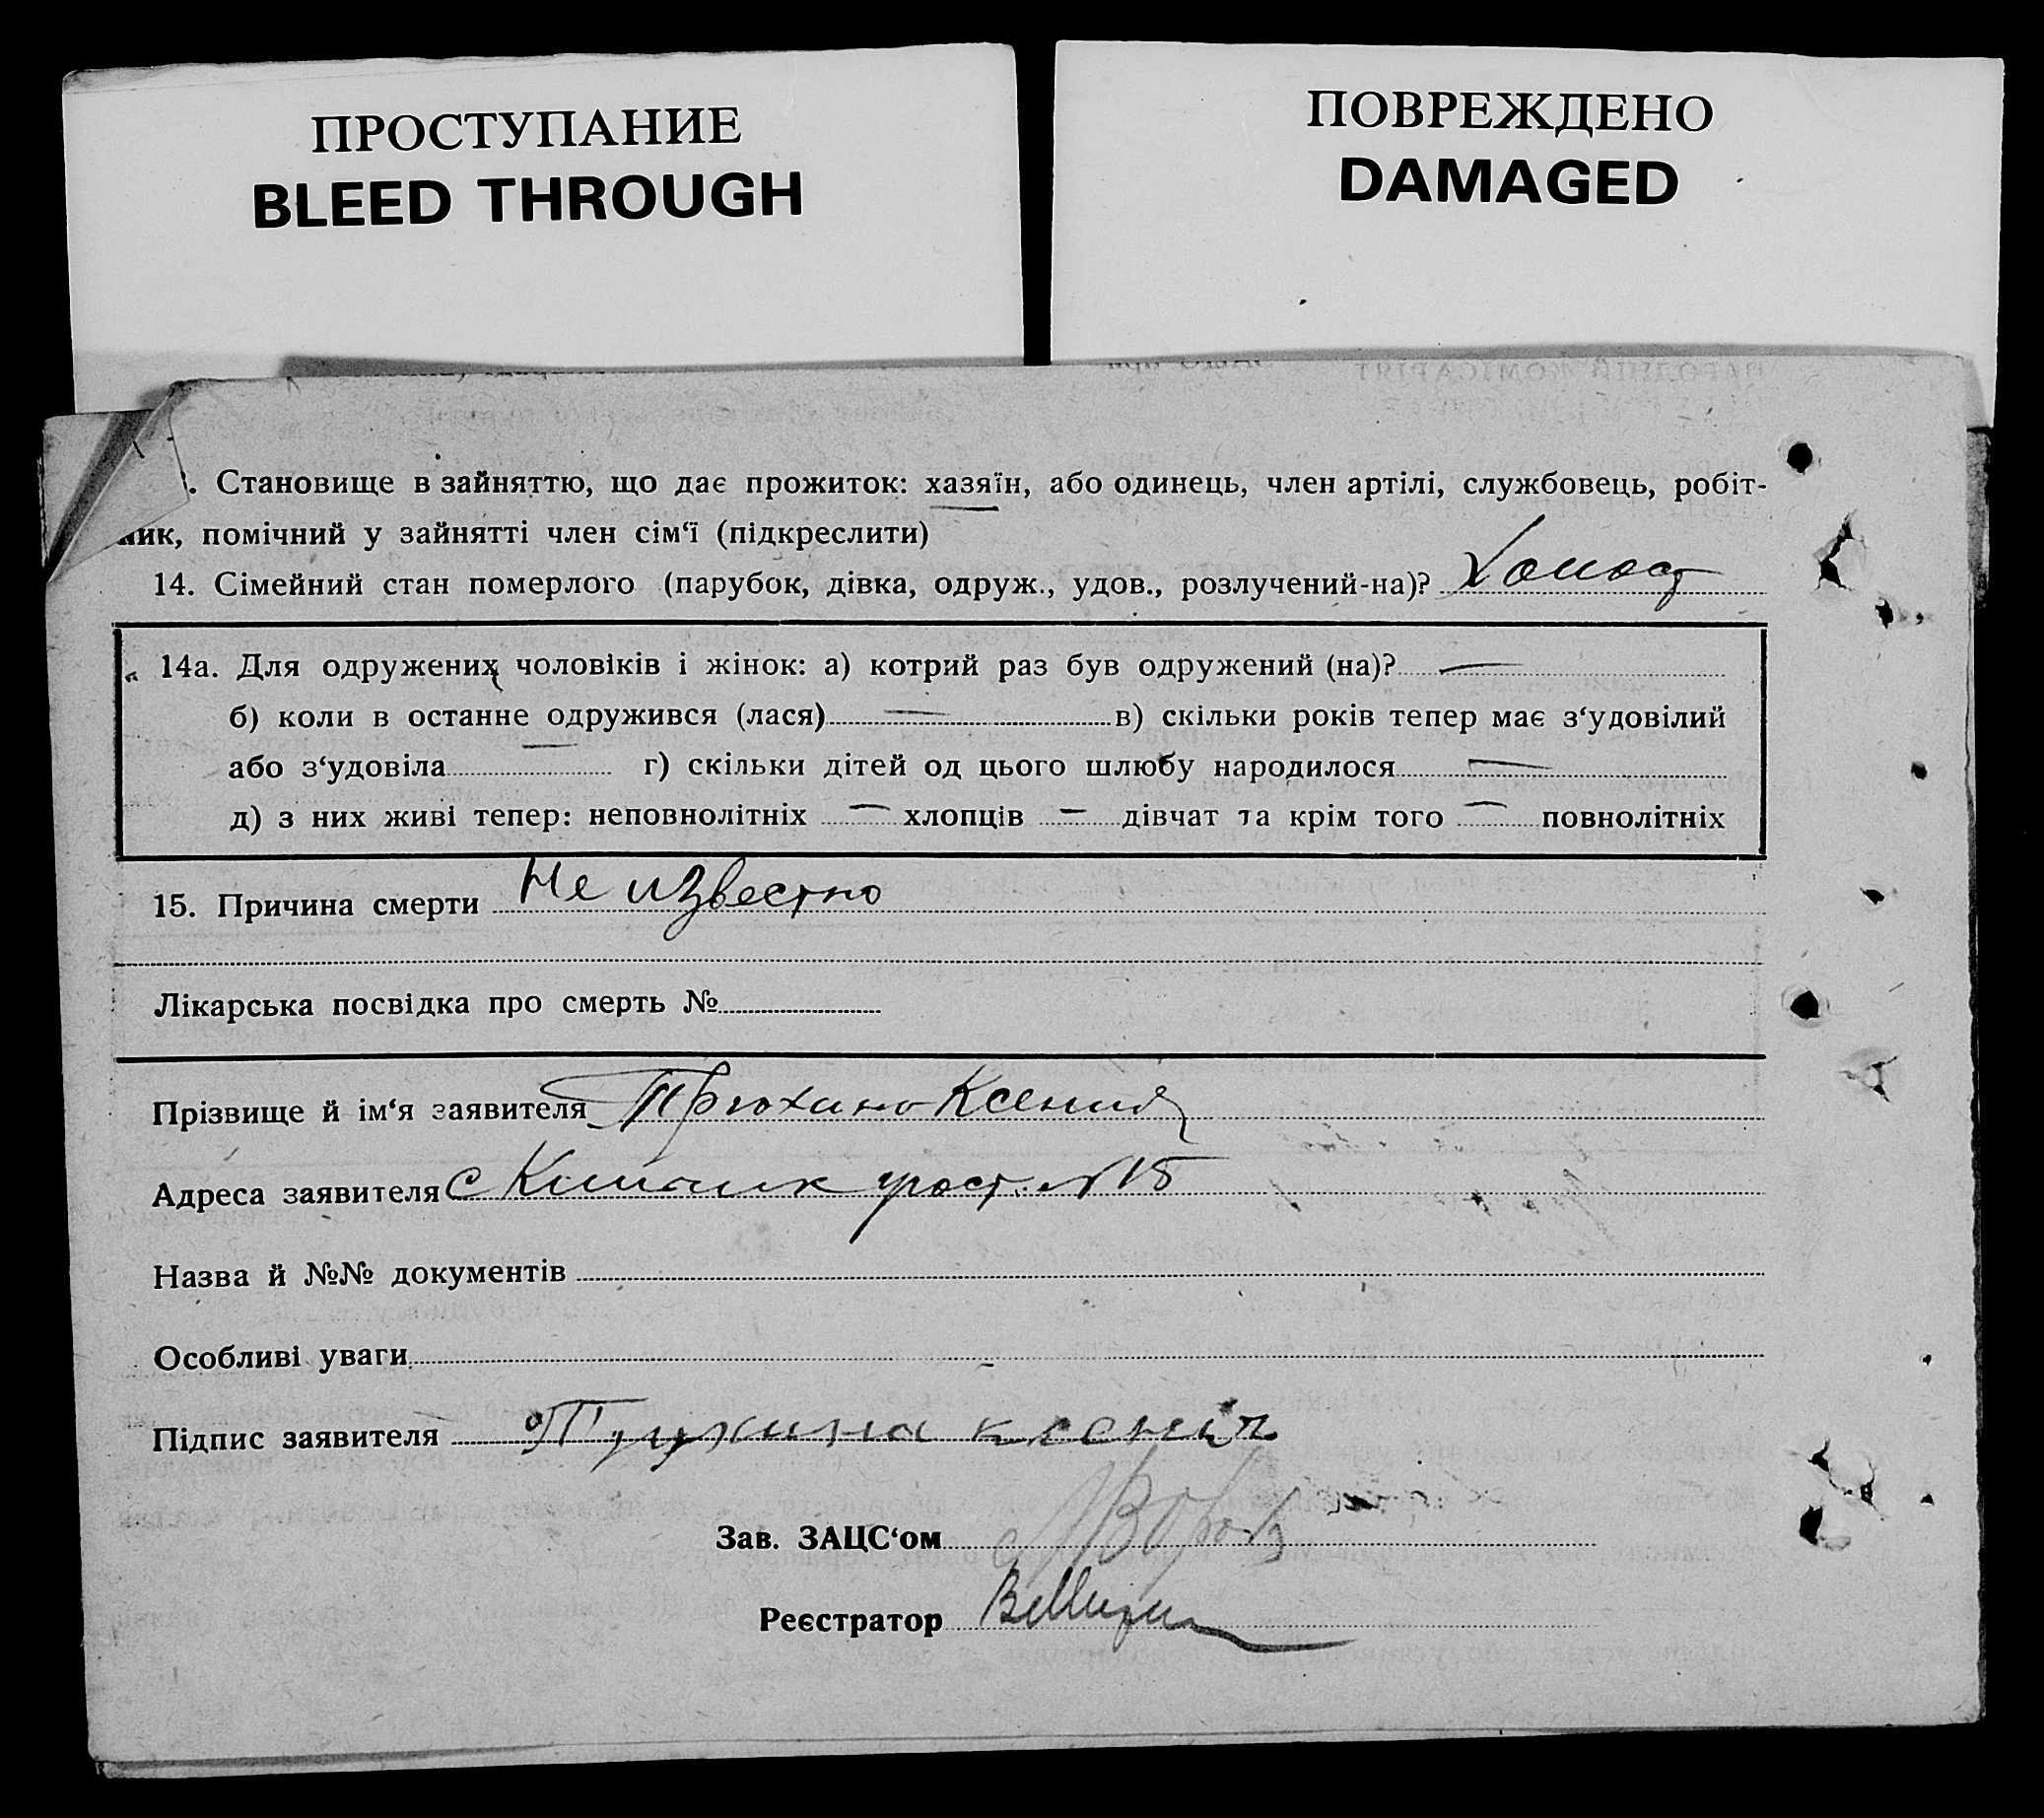 ПРОСТУПАНИЕ
BLEED THROUGH
ПОВРЕЖДЕНО
DAMAGED
. Становище в зайняттю, що дає прожиток: хазяїн, або одинець, член артілі, службовець, робіт-
ник, помічний у зайнятті член сім‘ї (підкреслити)
14. Сімейний стан померлого (парубок, дівка, одруж., удов., розлучений-на)? Холост
14а. Для одружених чоловіків і жінок: а) котрий раз був одружений (на)? —
б) коли в останне одружився (лася) — в) скільки років тепер має з‘удовілий
або з‘удовіла — г) скільки дітей од цього шлюбу народилося —
д) з них живі тепер: неповнолітніх — хлопців — дівчат та крім того — повнолітніх
15. Причина смерти Не известно
Лікарська посвідка про смерть №
Прізвище й ім‘я заявителя Ксения
Адреса заявителя с №15
Назва й №№ документів
Особливі уваги
Підпис заявителя ксенія
Зав. ЗАЦС‘ом
Реєстратор